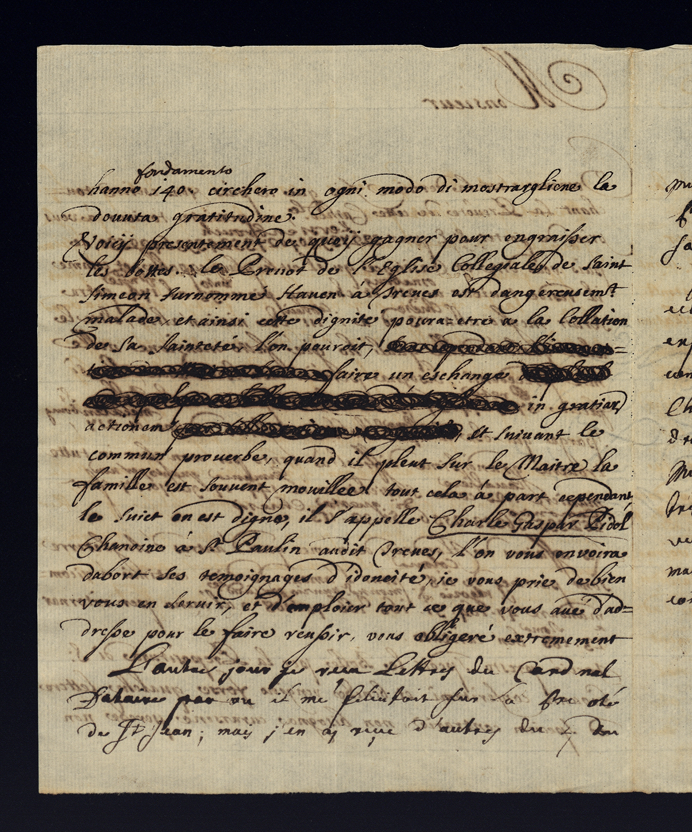 fondamento
hanno 140 circhero in ogni modo di mostrargliene la
douuta gratitudine.
Voicy presentement de quoy gagner pour engraisser
les bottes. le Prevot de l'Eglise Collegiale de Saint
Simeon surnomme Haven à Treves est dangereusemt
malade, et ainsi cette dignite poura etre a la Collation
de sa Sainteté, l'on pouroit,
faire un eschange
in gratiar
actionem, et suivant le
commun proverbe, quand il pleut sur le Maitre la
famille est souvent mouillee, tout cela à part cependant
le suiet en est digne, il s'appelle Charle Gaspar Pidol
Chanoine à St Paulin audit Treves, l'on vous envoira
dabort ses temoignages d'idoneité, je vous prie de bien
vous en servir, et d'emploier tout ce que vous avé d'ad=
dresse pour le faire reussir, vous obligeré extremement
L'autre jour je receu Lettres du Cardinal
Dataire par ou il me felicitoit sur
de St Jean; mais j'en ay reçue d'autres du
Monsieur